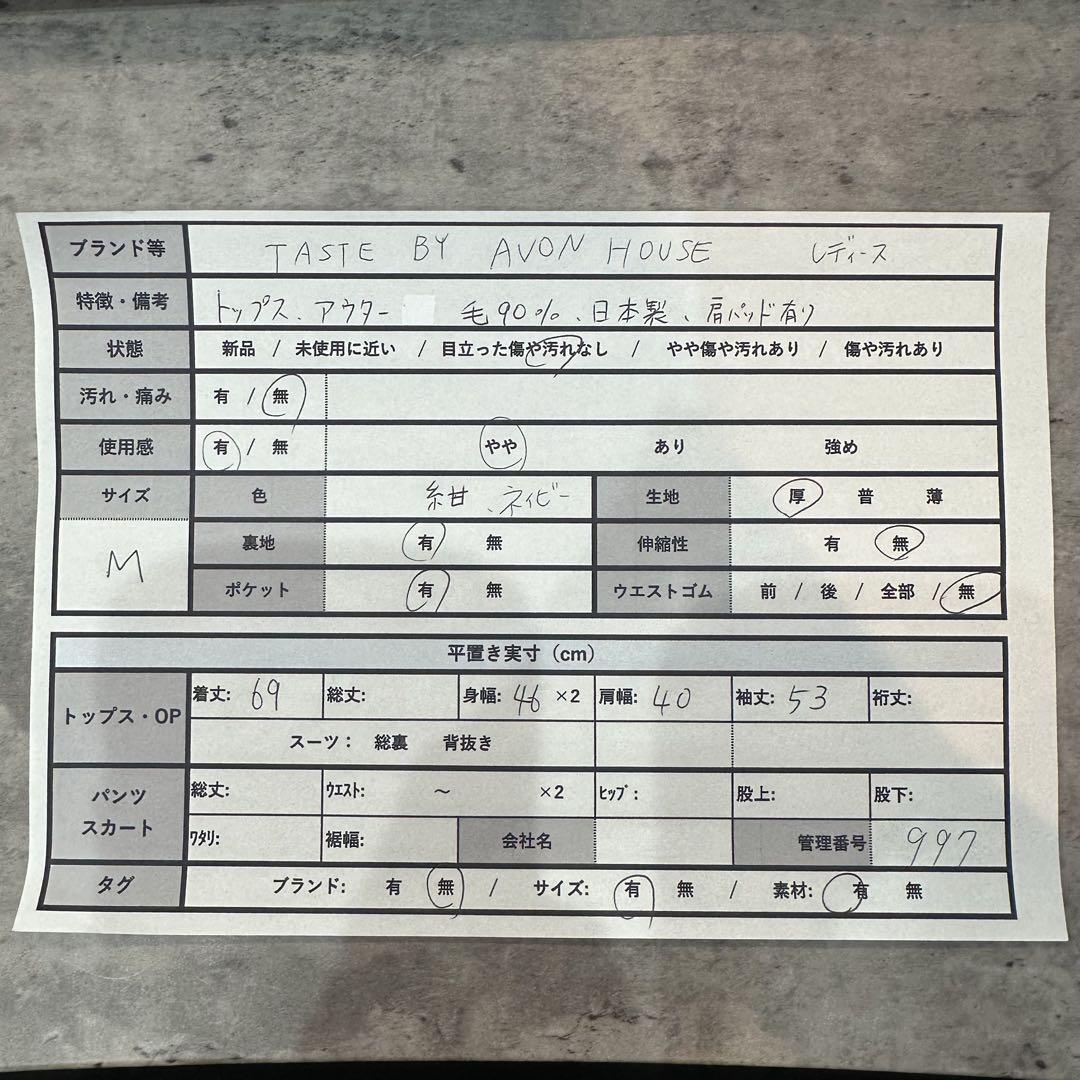 ブランド等 TASTE BY AVON HOUSE レディース
特徴・備考 トップス、アウター 毛90%、日本製、肩パッド有り
状態 新品 / 未使用に近い / 目立った傷や汚れなし / やや傷や汚れあり / 傷や汚れあり
汚れ・痛み 有 / 無
使用感 有 / 無 やや あり 強め
サイズ 色 紺、ネイビー 生地 厚 普 薄
M 裏地 有 無 伸縮性 有 無
ポケット 有 無 ウエストゴム 前 / 後 / 全部 / 無
平置き実寸（cm）
トップス・OP 着丈: 69 総丈: 身幅: 46 ×2 肩幅: 40 袖丈: 53 裄丈:
スーツ： 総裏 背抜き
パンツ スカート 総丈: ｳｴｽﾄ: ～ ×2 ﾋｯﾌﾟ: 股上: 股下:
ﾜﾀﾘ: 裾幅: 会社名 管理番号 997
タグ ブランド: 有 無 / サイズ: 有 無 / 素材: 有 無